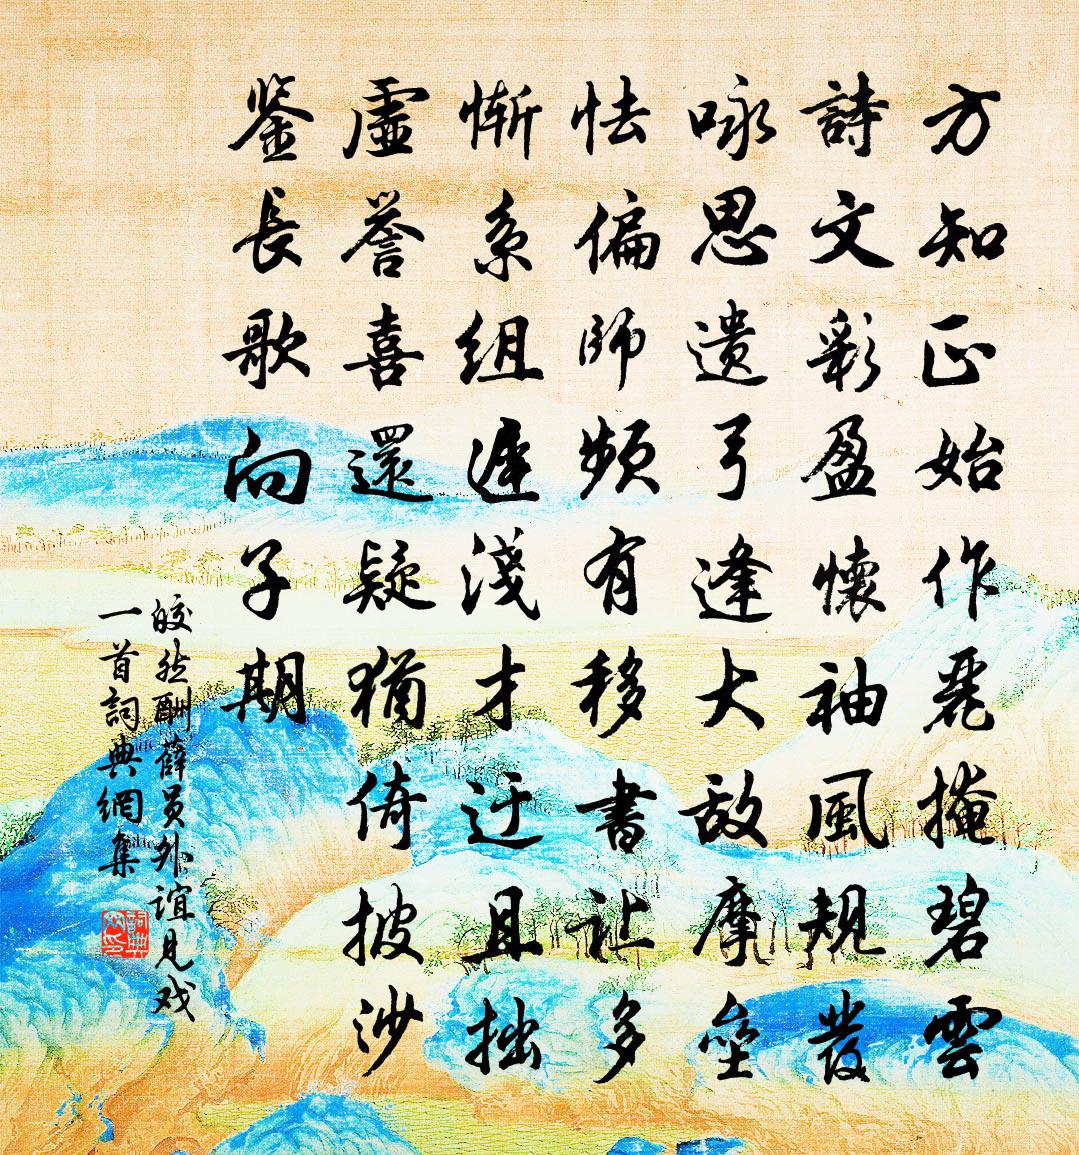 方知正始作麗掩碧雲
詩文彩盈懷袖風規發
咏思遺弓逢大敌摩壘
怯偏師頻有移書让多
惭系組遲淺才迂且拙
虛譽喜還疑猶倚披沙
鉴長歌向子期
皎然酬薛员外誼見戏
一首詞典網集